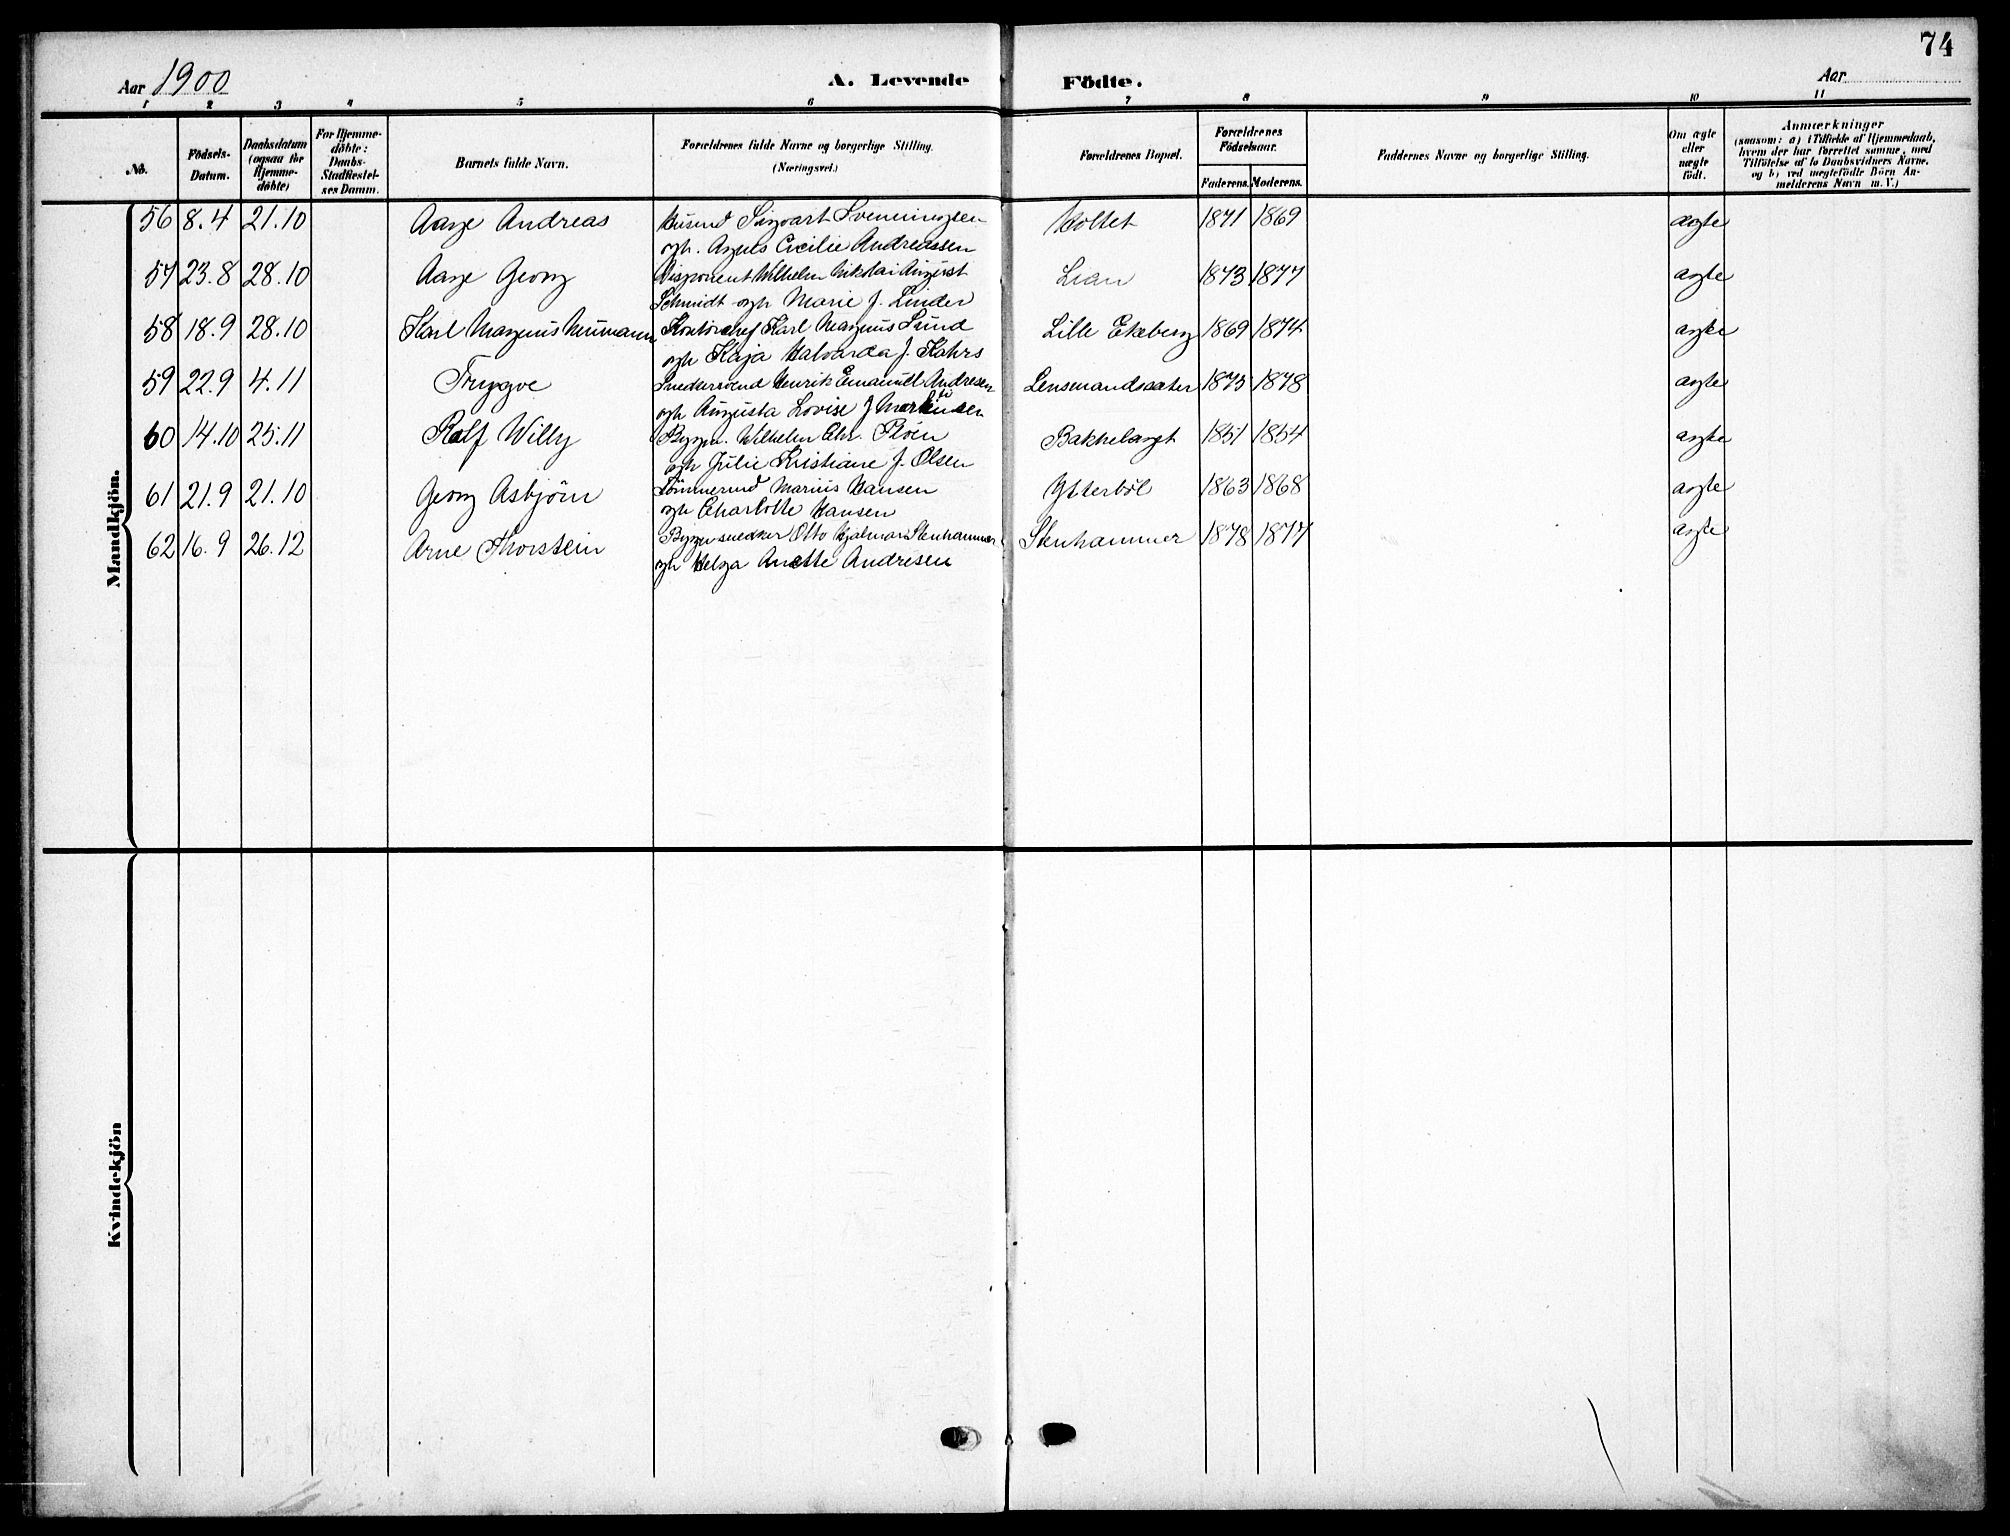 74
Aar 1900 A. Levende Födte. Aar
1 2 3 4 5 6 7 8 9 10 11
No. Födsels-Datum. Daabsdatum (ogsaa for Hjemme-döbte) For Hjemme-döbte: Daabs-Stadfæstel-ses Datum. Barnets fulde Navn. Forældrenes fulde Navne og borgerlige Stilling. (Næringsvei.) Forældrenes Bopæl. Forældrenes Födselsaar. Faderens. Moderens. Faddernes Navne og borgerlige Stilling. Om ægte eller uægte födt. Anmærkninger (saasom: a) i Tilfælde af Hjemmedaab, hvem der har forrettet samme, med Tilföielse af to Daabsvidners Navne, og b) ved uægtefödte Börn An-melderens Navn m. V.)
Mandkjön.
56 8.4 21.10 Aage Andreas Husmd Sigvart Svenningsen Holtet 1871 1869 ægte
og h. Agnes Cecilie Andreassen
57 23.8 28.10 Aage Georg Disponent Wilhelm Nikolai August Lian 1873 1877 ægte
Schmidt og h Marie f. Linder
58 18.9 28.10 Karl Magnus Numann Kontorchef Karl Magnus Lund Lille Ekeberg 1869 1874 ægte
og h Kaja Halvarda f. Kahrs
59 22.9 4.11 Tryggve Snedkersvend Henrik Emanuel Andresen Lensmandssæter 1875 1878 ægte
og h Augusta Lovise f Martinsen
60 14.10 25.11 Rolf Willy Bygm. Wilhelm Chr. Ploen Bakkelaget 1851 1854 ægte
og h Julie Kristiane f. Olsen
61 21.9 21.10 Georg Asbjörn Tömmermd Marius Hansen Ytterböl 1863 1868 ægte
og h Charlotte Hansen
62 16.9 26.12 Arne Thorstein Bygnsnedker Otto Hjalmar Stenhammer Stenhammer 1878 1877 ægte
og h Helga Anette Andresen
Kvindekjön